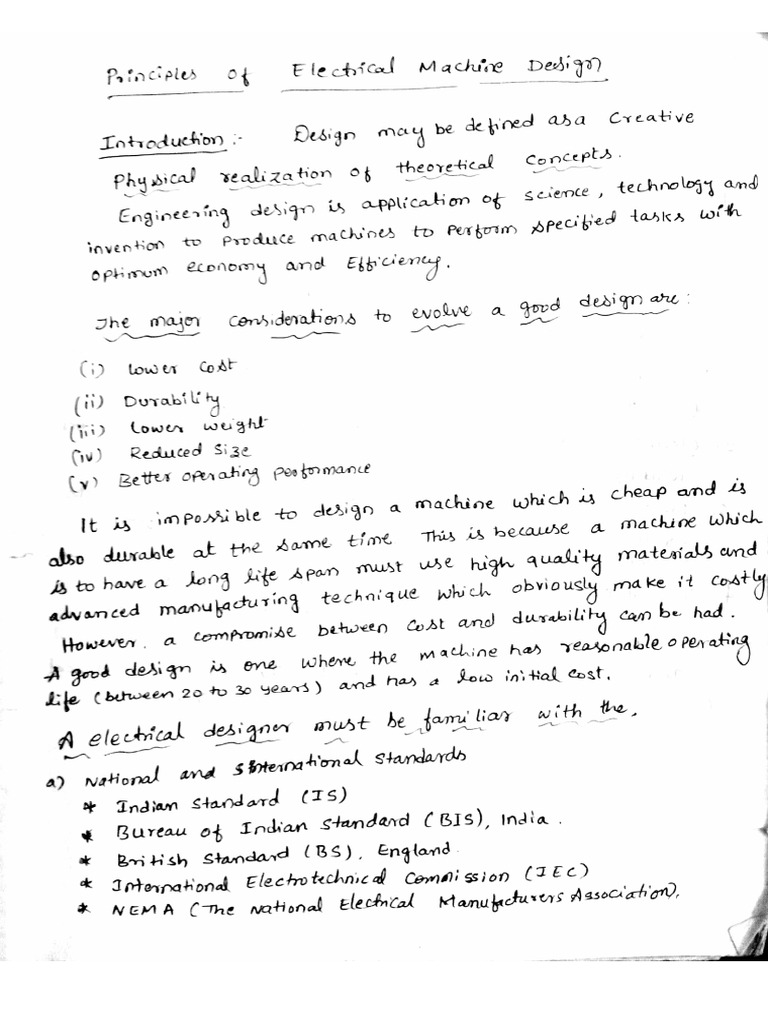 Principles of Electrical Machine Design
Introduction:- Design may be defined as a Creative
Physical realization of theoretical concepts.
Engineering design is application of science, technology and
invention to produce machines to perform specified tasks with
optimum economy and Efficiency.
The major considerations to evolve a good design are:
(i) Lower cost
(ii) Durability
(iii) Lower weight
(iv) Reduced Size
(v) Better operating performance
It is impossible to design a machine which is cheap and is
also durable at the same time This is because a machine which
is to have a long life span must use high quality materials and
advanced manufacturing technique which obviously make it costly
However, a compromise between cost and durability can be had.
A good design is one where the machine has reasonable operating
life (between 20 to 30 years) and has a low initial cost.
A electrical designer must be familiar with the,
a) National and International Standards
* Indian Standard (IS)
* Bureau of Indian Standard (BIS), India.
* British Standard (BS), England.
* International Electrotechnical Commission (IEC)
* NEMA (The National Electrical Manufacturers Association).